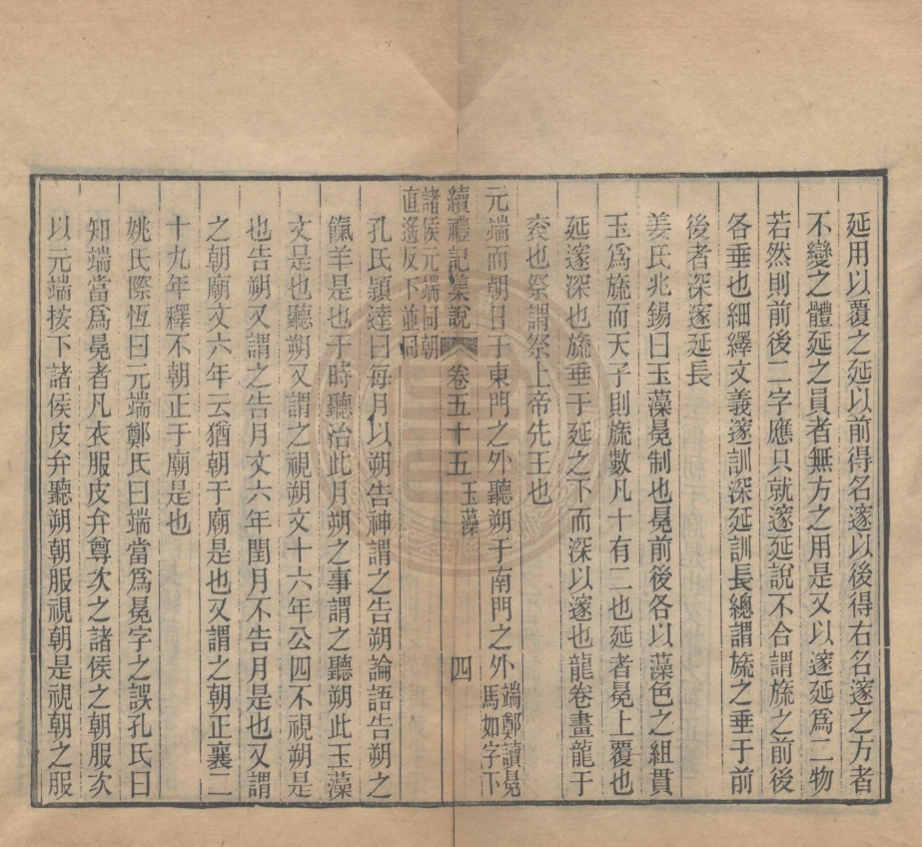 延用以覆之延以前得名邃以後得右名邃之方者
不變之體延之員者無方之用是又以邃延爲二物
若然則前後二字應只就邃延說不合謂旒之前後
各垂也細繹文義邃訓深延訓長總謂旒之垂于前
後者深邃延長
姜氏兆錫曰玉藻冕制也冕前後各以藻色之組貫
玉爲旒而天子則旒數凡十有二也延者冕上覆也
延邃深也旒垂于延之下而深以邃也龍卷畫龍于
衮也祭謂祭上帝先王也
元端而朝日于東門之外聽朔于南門之外端鄭讀冕
馬如字下
續禮記集說 卷五十五 玉藻 四
諸侯元端同朝
直遙反下並同
孔氏穎達曰每月以朔告神謂之告朔論語告朔之
餼羊是也于時聽治此月朔之事謂之聽朔此玉藻
文是也聽朔又謂之視朔文十六年公四不視朔是
也告朔又謂之告月文六年閏月不告月是也又謂
之朝廟文六年云猶朝于廟是也又謂之朝正襄二
十九年釋不朝正于廟是也
姚氏際恆曰元端鄭氏曰端當爲冕字之誤孔氏曰
知端當爲冕者凡衣服皮弁尊次之諸侯之朝服次
以元端按下諸侯皮弁聽朔朝服視朝是視朝之服